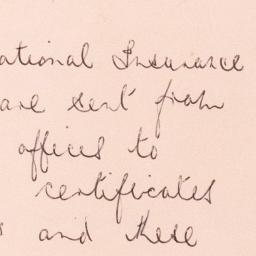 ational Insurance
are sent from
offices to
certificates
and these